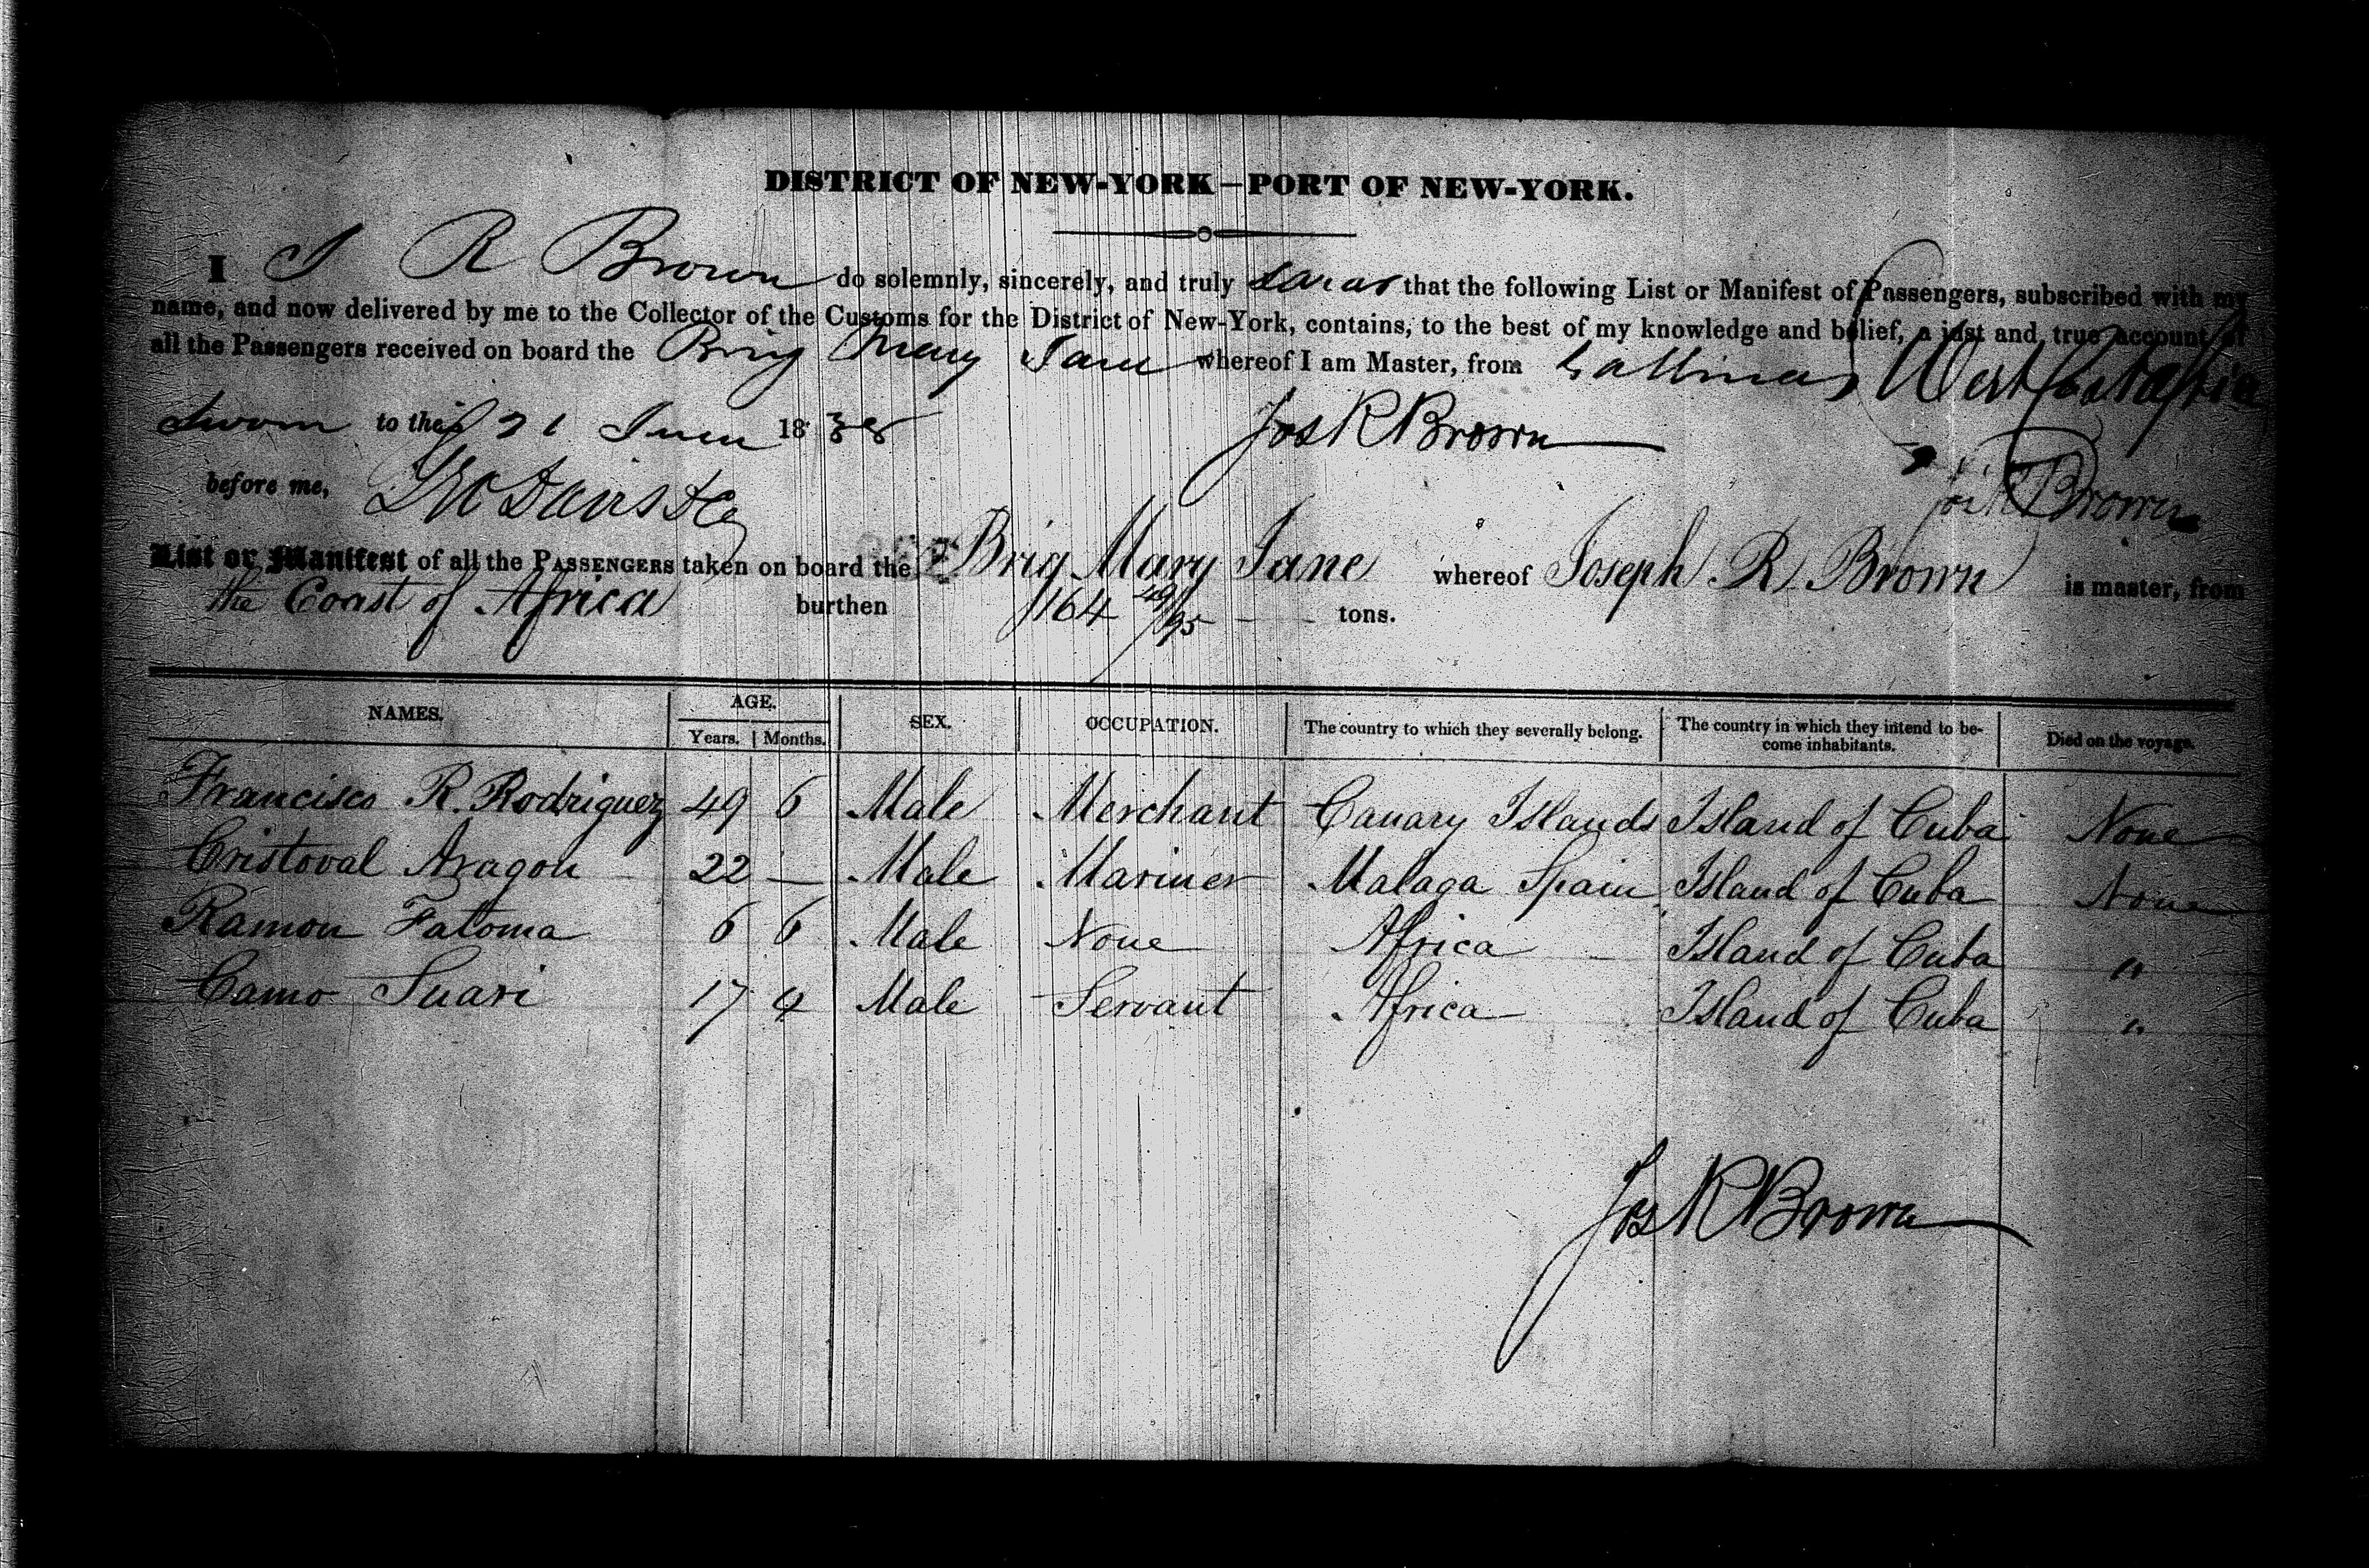 DISTRICT OF NEW-YORK—PORT OF NEW-YORK.
I J R Brown do solemnly, sincerely, and truly swear that the following List or Manifest of Passengers, subscribed with my
name, and now delivered by me to the Collector of the Customs for the District of New-York, contains, to the best of my knowledge and belief, a just and true account of
all the Passengers received on board the Brig Mary Jane whereof I am Master, from Gallinas West Coast Africa
Sworn to this 21 June 1838 Jos R Brown
before me, Jos R Brown
List or Manifest of all the PASSENGERS taken on board the Brig Mary Jane whereof Joseph R Brown is master, from
the Coast of Africa burthen 164 49/95 tons.
NAMES. AGE. SEX. OCCUPATION. The country to which they severally belong. The country in which they intend to be- Died on the voyage.
Years. Months. come inhabitants.
Francisco R. Rodriguez 49 6 Male Merchant Canary Islands Island of Cuba None
Cristoval Aragon 22 — Male Mariner Malaga Spain Island of Cuba None
Ramon Fatoma 6 6 Male None Africa Island of Cuba "
Camo Suari 17 4 Male Servant Africa Island of Cuba "
Jos R Brown